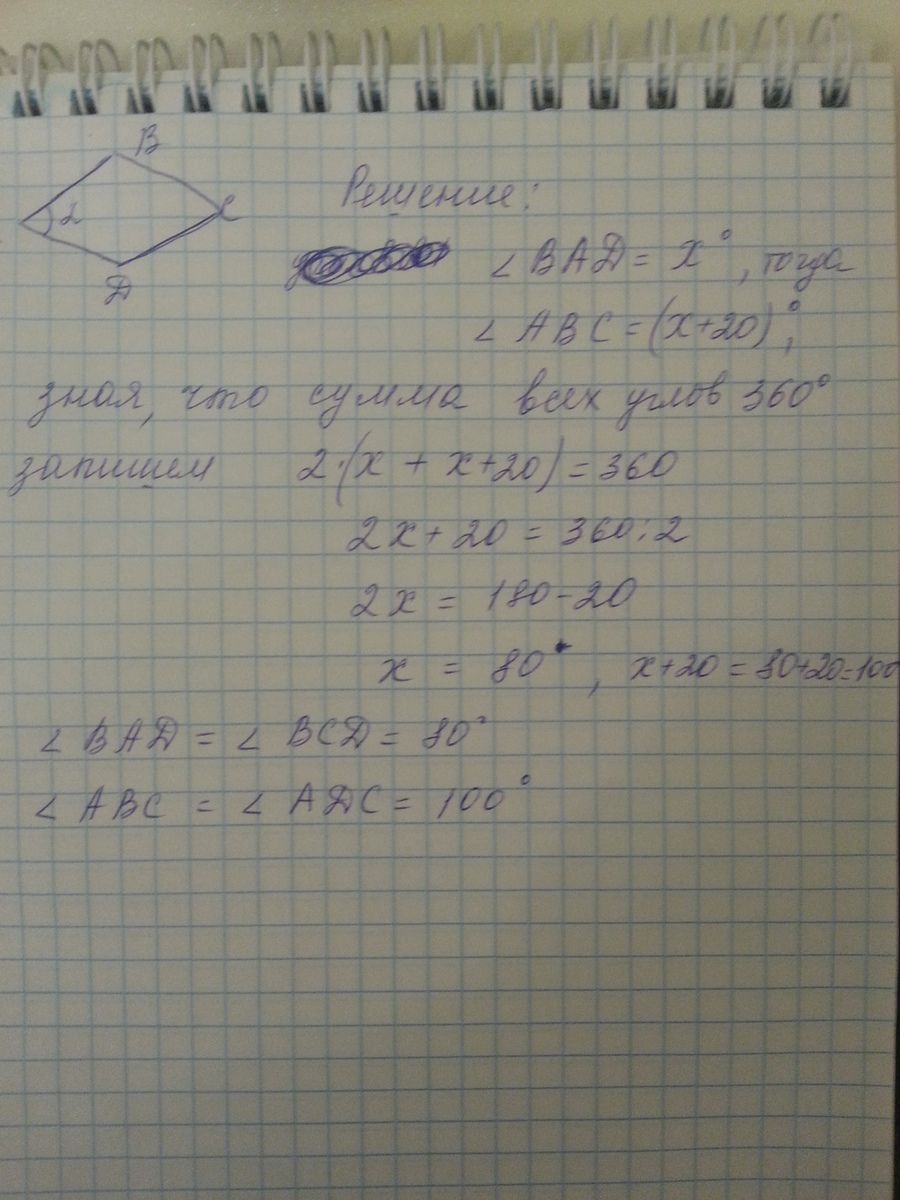 B
C
D
Решение:
∠ BAD = x°, тогда
∠ ABC = (x+20)°,
зная, что сумма всех углов 360°
запишем 2·(x + x+20) = 360
2x + 20 = 360:2
2x = 180-20
x = 80°, x+20 = 80+20=100
∠ BAD = ∠ BCD = 80°
∠ ABC = ∠ ADC = 100°